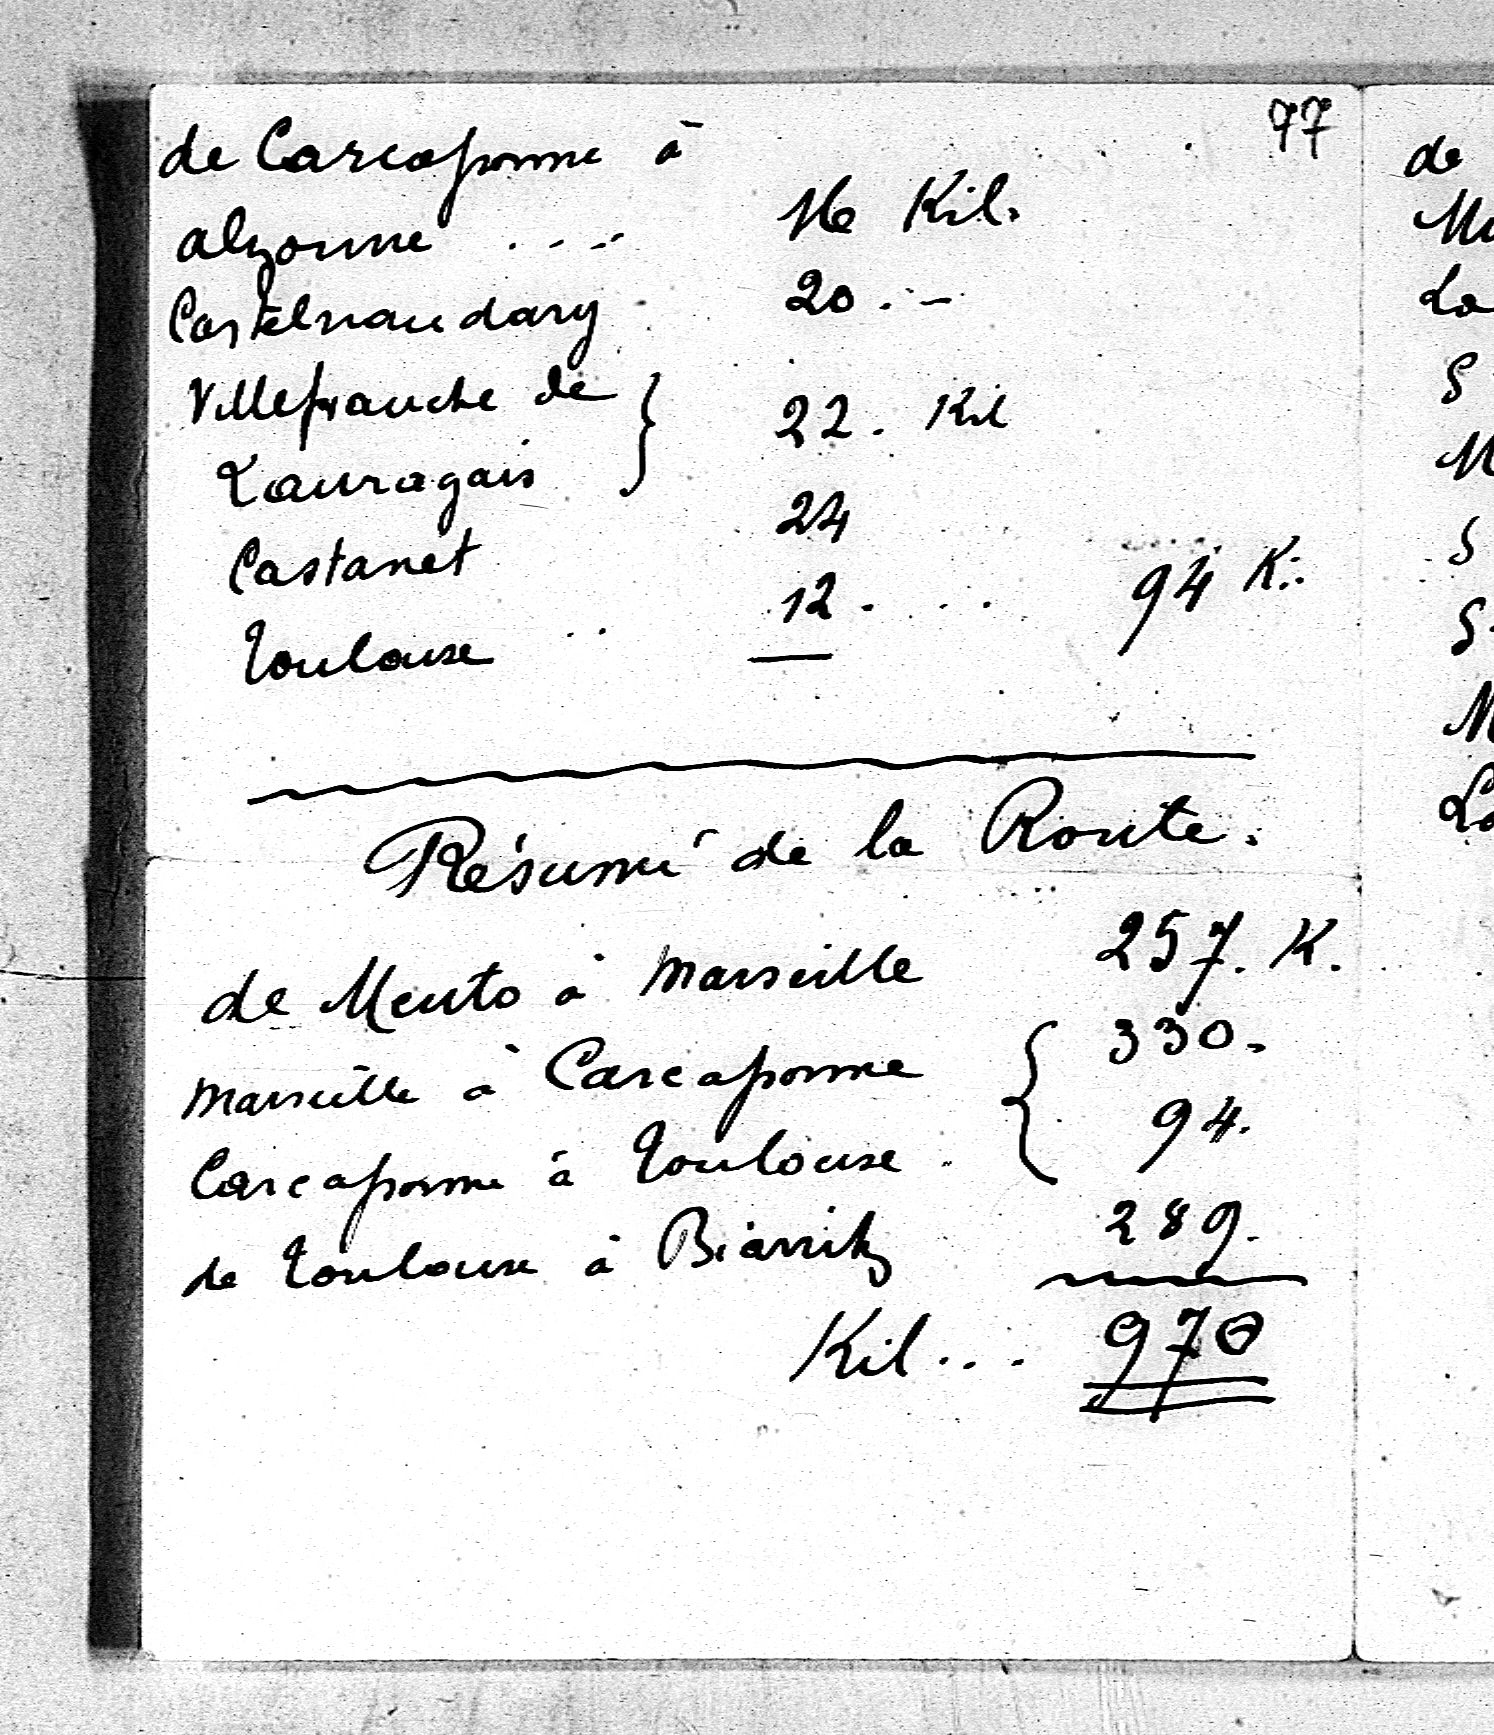 77
de Carcassonne à
alzonne . . . 16 Kil.
Castelnaudary . 20 . –
Villefranche de
Lauragais } 22 . Kil
Castanet 24
Toulouse .. 12 . . . . 94 K.
Résumé de la Route.
de Mento à Marseille 257. K.
Marseille à Carcassonne { 330.
Carcassonne à Toulouse . 94.
de Toulouse à Biarritz 289.
Kil . . . 970
de
Lo
S
M
S
S
M